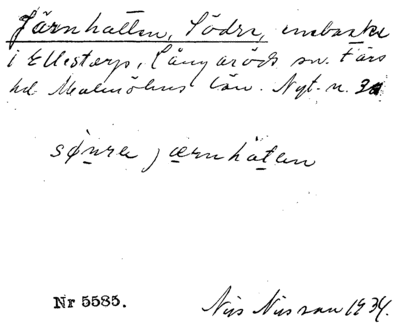 Järnhatten, Södra, enebacke
i Ellestorp, Långaröds sn. Färs
hd Malmöhus län. Nyt. n.
sønre jærnhätən
Nr 5585.
Nils Nilsson 1934.